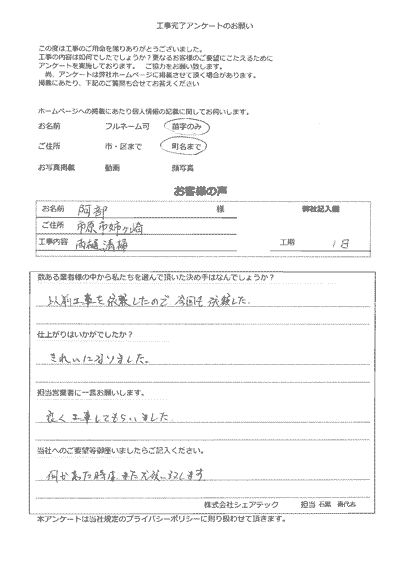 工事完了アンケートのお願い
この度は工事のご用命を賜りありがとうございました。
工事の内容は如何でしたでしょうか?更なるお客様のご要望にこたえるために
アンケートを実施しております。 ご協力をお願い致します。
尚、アンケートは弊社ホームページに掲載させて頂く場合があります。
掲載にあたり、下記のご質問も合せてお答えください
ホームページへの掲載にあたり個人情報の記載に関してお伺いします。
お名前 フルネーム可 苗字のみ
ご住所 市・区まで 町名まで
お写真掲載 動画 顔写真
お客様の声
お名前 阿部 様 御社記入欄
ご住所 市原市姉ヶ崎
工事内容 雨樋清掃 工期 1日
数ある業者様の中から私たちを選んで頂いた決め手はなんでしょうか?
以前工事を依頼したので 今回も依頼した.
仕上がりはいかがでしたか?
きれいになりました。
担当営業者に一言お願いします。
良く工事してもらいました
当社へのご要望等御座いましたらご記入ください。
何かあった時は、また
株式会社シェアテック 担当 石黒
本アンケートは当社規定のプライバシーポリシーに則り扱わせて頂きます。